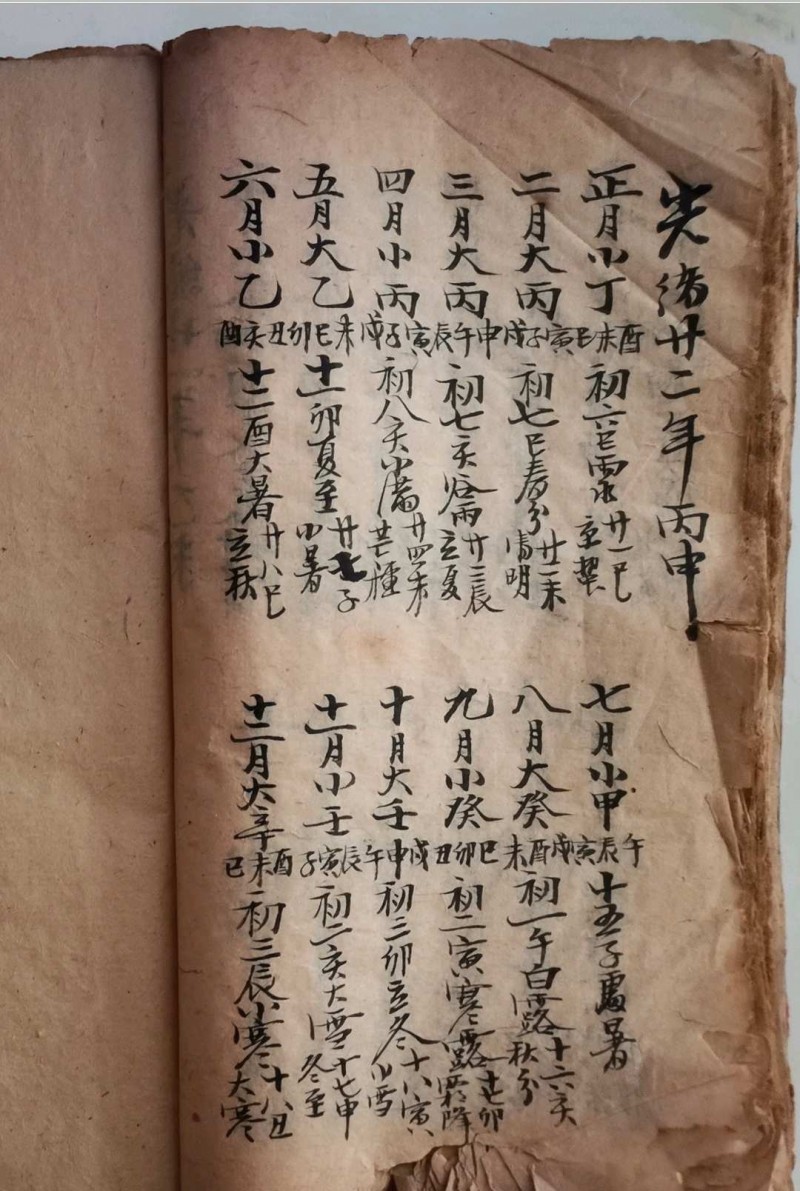 光緒廿二年丙申
正月小丁酉未巳初六巳雨水廿一巳京蟄
二月大丙寅子戌初七巳春分廿二未清明
三月大丙申午辰初七亥谷雨廿三辰立夏
四月小丙寅子戌初八亥小滿廿四未芒種
五月大乙未巳卯十一卯夏至廿七子小暑
六月小乙丑亥酉十二酉大暑廿八巳立秋
七月小甲午辰寅十五子處暑
八月大癸亥酉未初一午白露十六亥秋分
九月小癸巳卯丑初二寅寒露十七卯霜降
十月大壬戌申午初三卯立冬十八寅小雪
十一月小壬辰寅子初二亥大雪十七申冬至
十二月大辛酉未巳初三辰小寒十八丑大寒